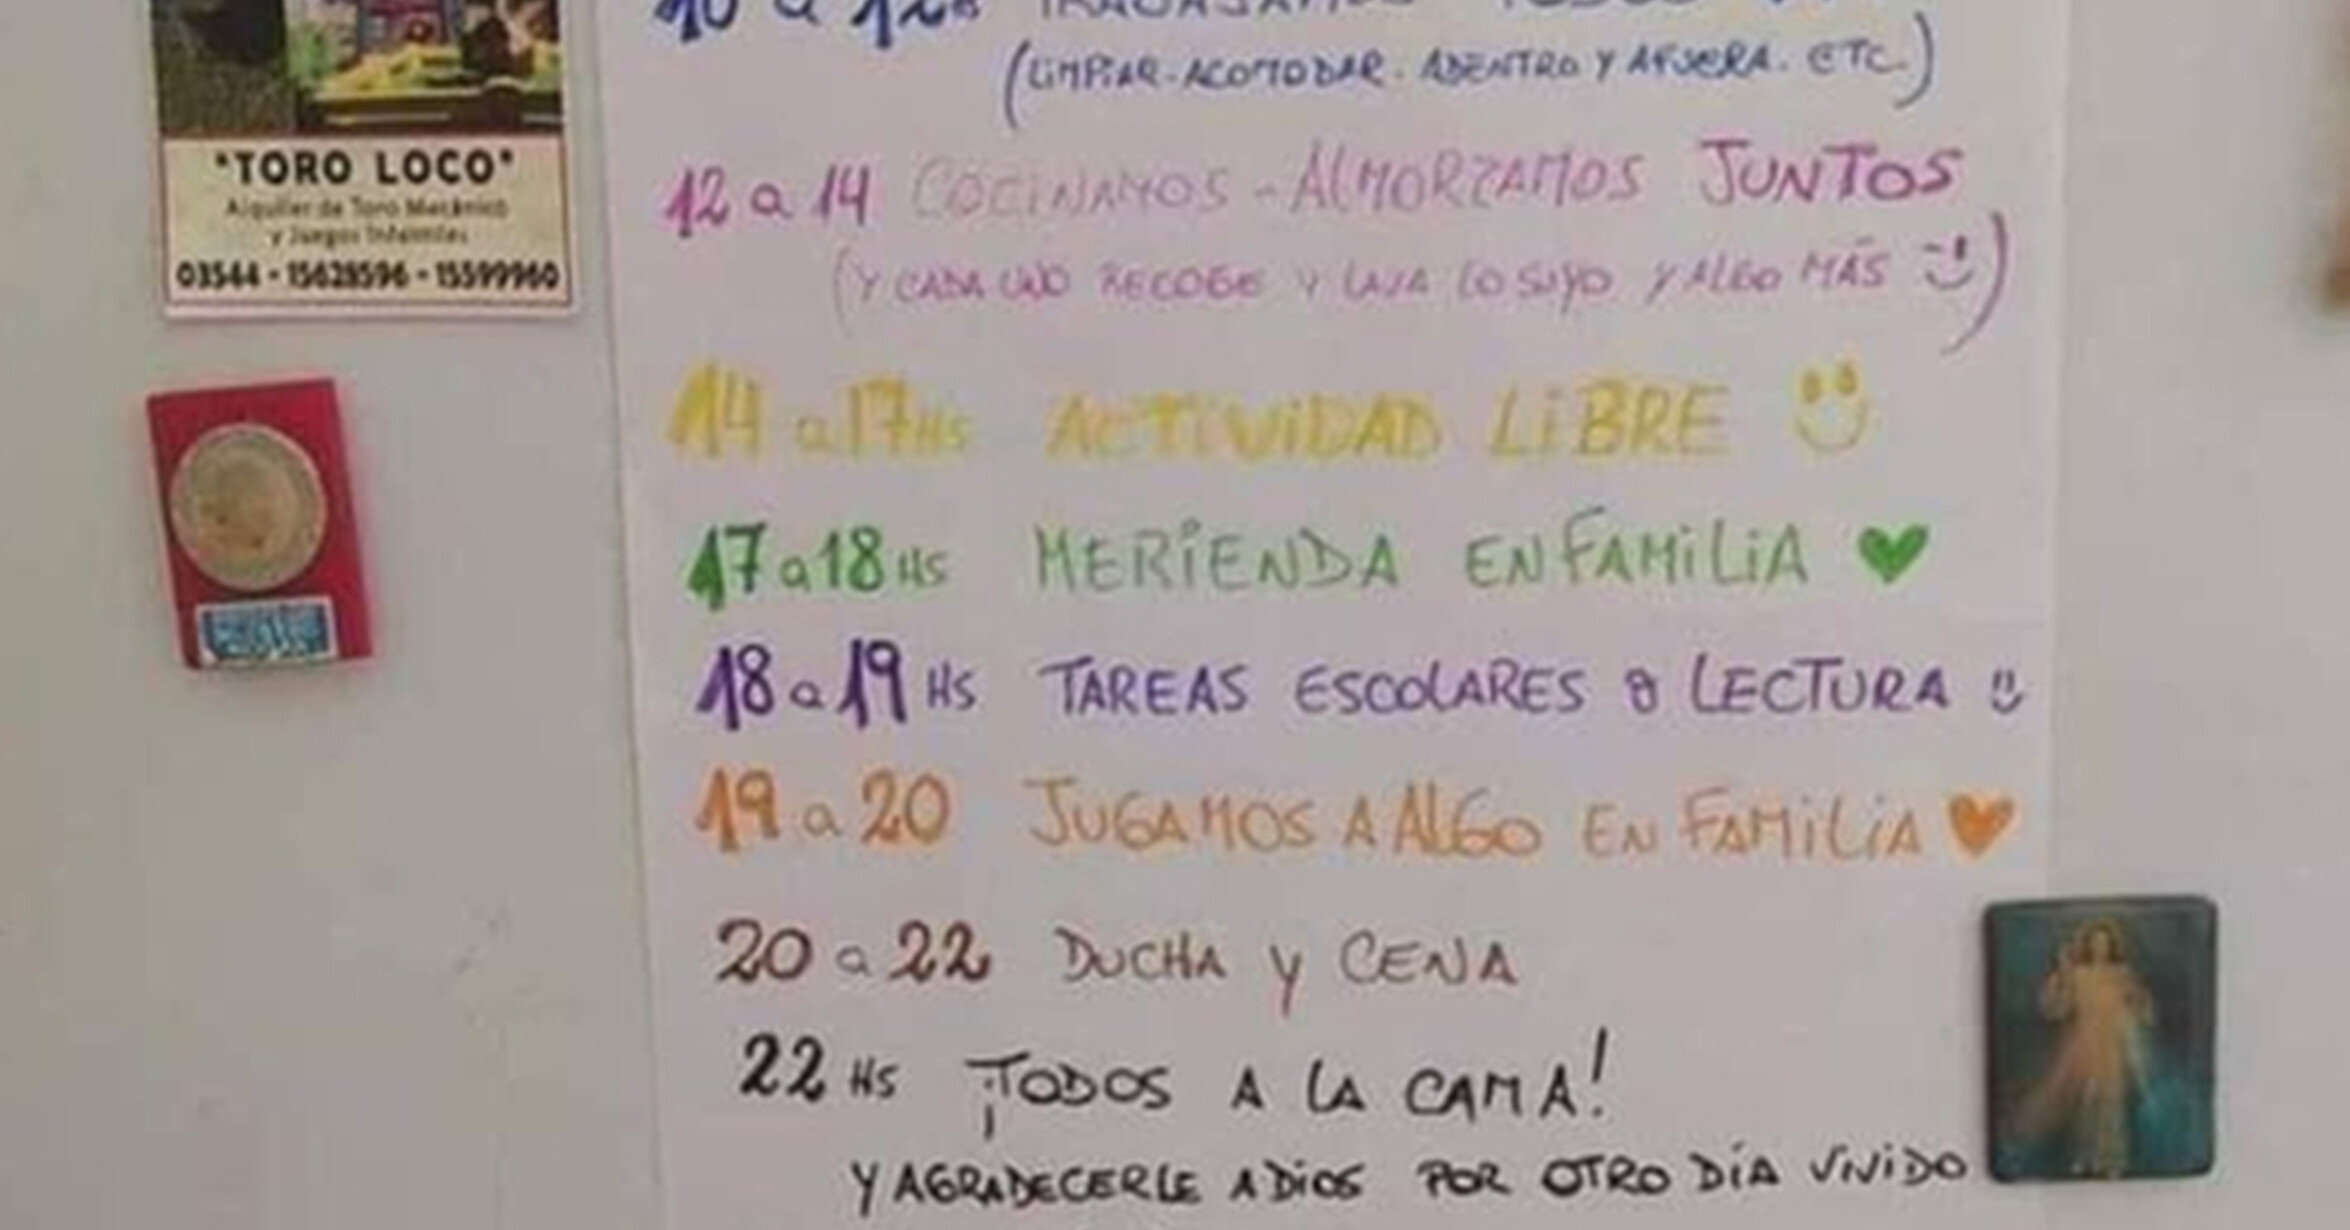 "TORO LOCO"
Alquiler de Toro Mecánico
y Juegos Infantiles
03544 - 15628596 - 15599960
10 a 12 hs TRABAJAMOS TODOS
(LIMPIAR-ACOMODAR. ADENTRO Y AFUERA. ETC.)
12 a 14 COCINAMOS - ALMORZAMOS JUNTOS
(Y CADA UNO RECOGE Y LAVA LO SUYO Y ALGO MÁS)
14 a 17 HS ACTIVIDAD LIBRE
17 a 18 HS MERIENDA EN FAMILIA
18 a 19 HS TAREAS ESCOLARES o LECTURA
19 a 20 JUGAMOS A ALGO EN FAMILIA
20 a 22 DUCHA Y CENA
22 HS ¡TODOS A LA CAMA!
Y AGRADECERLE A DIOS POR OTRO DÍA VIVIDO